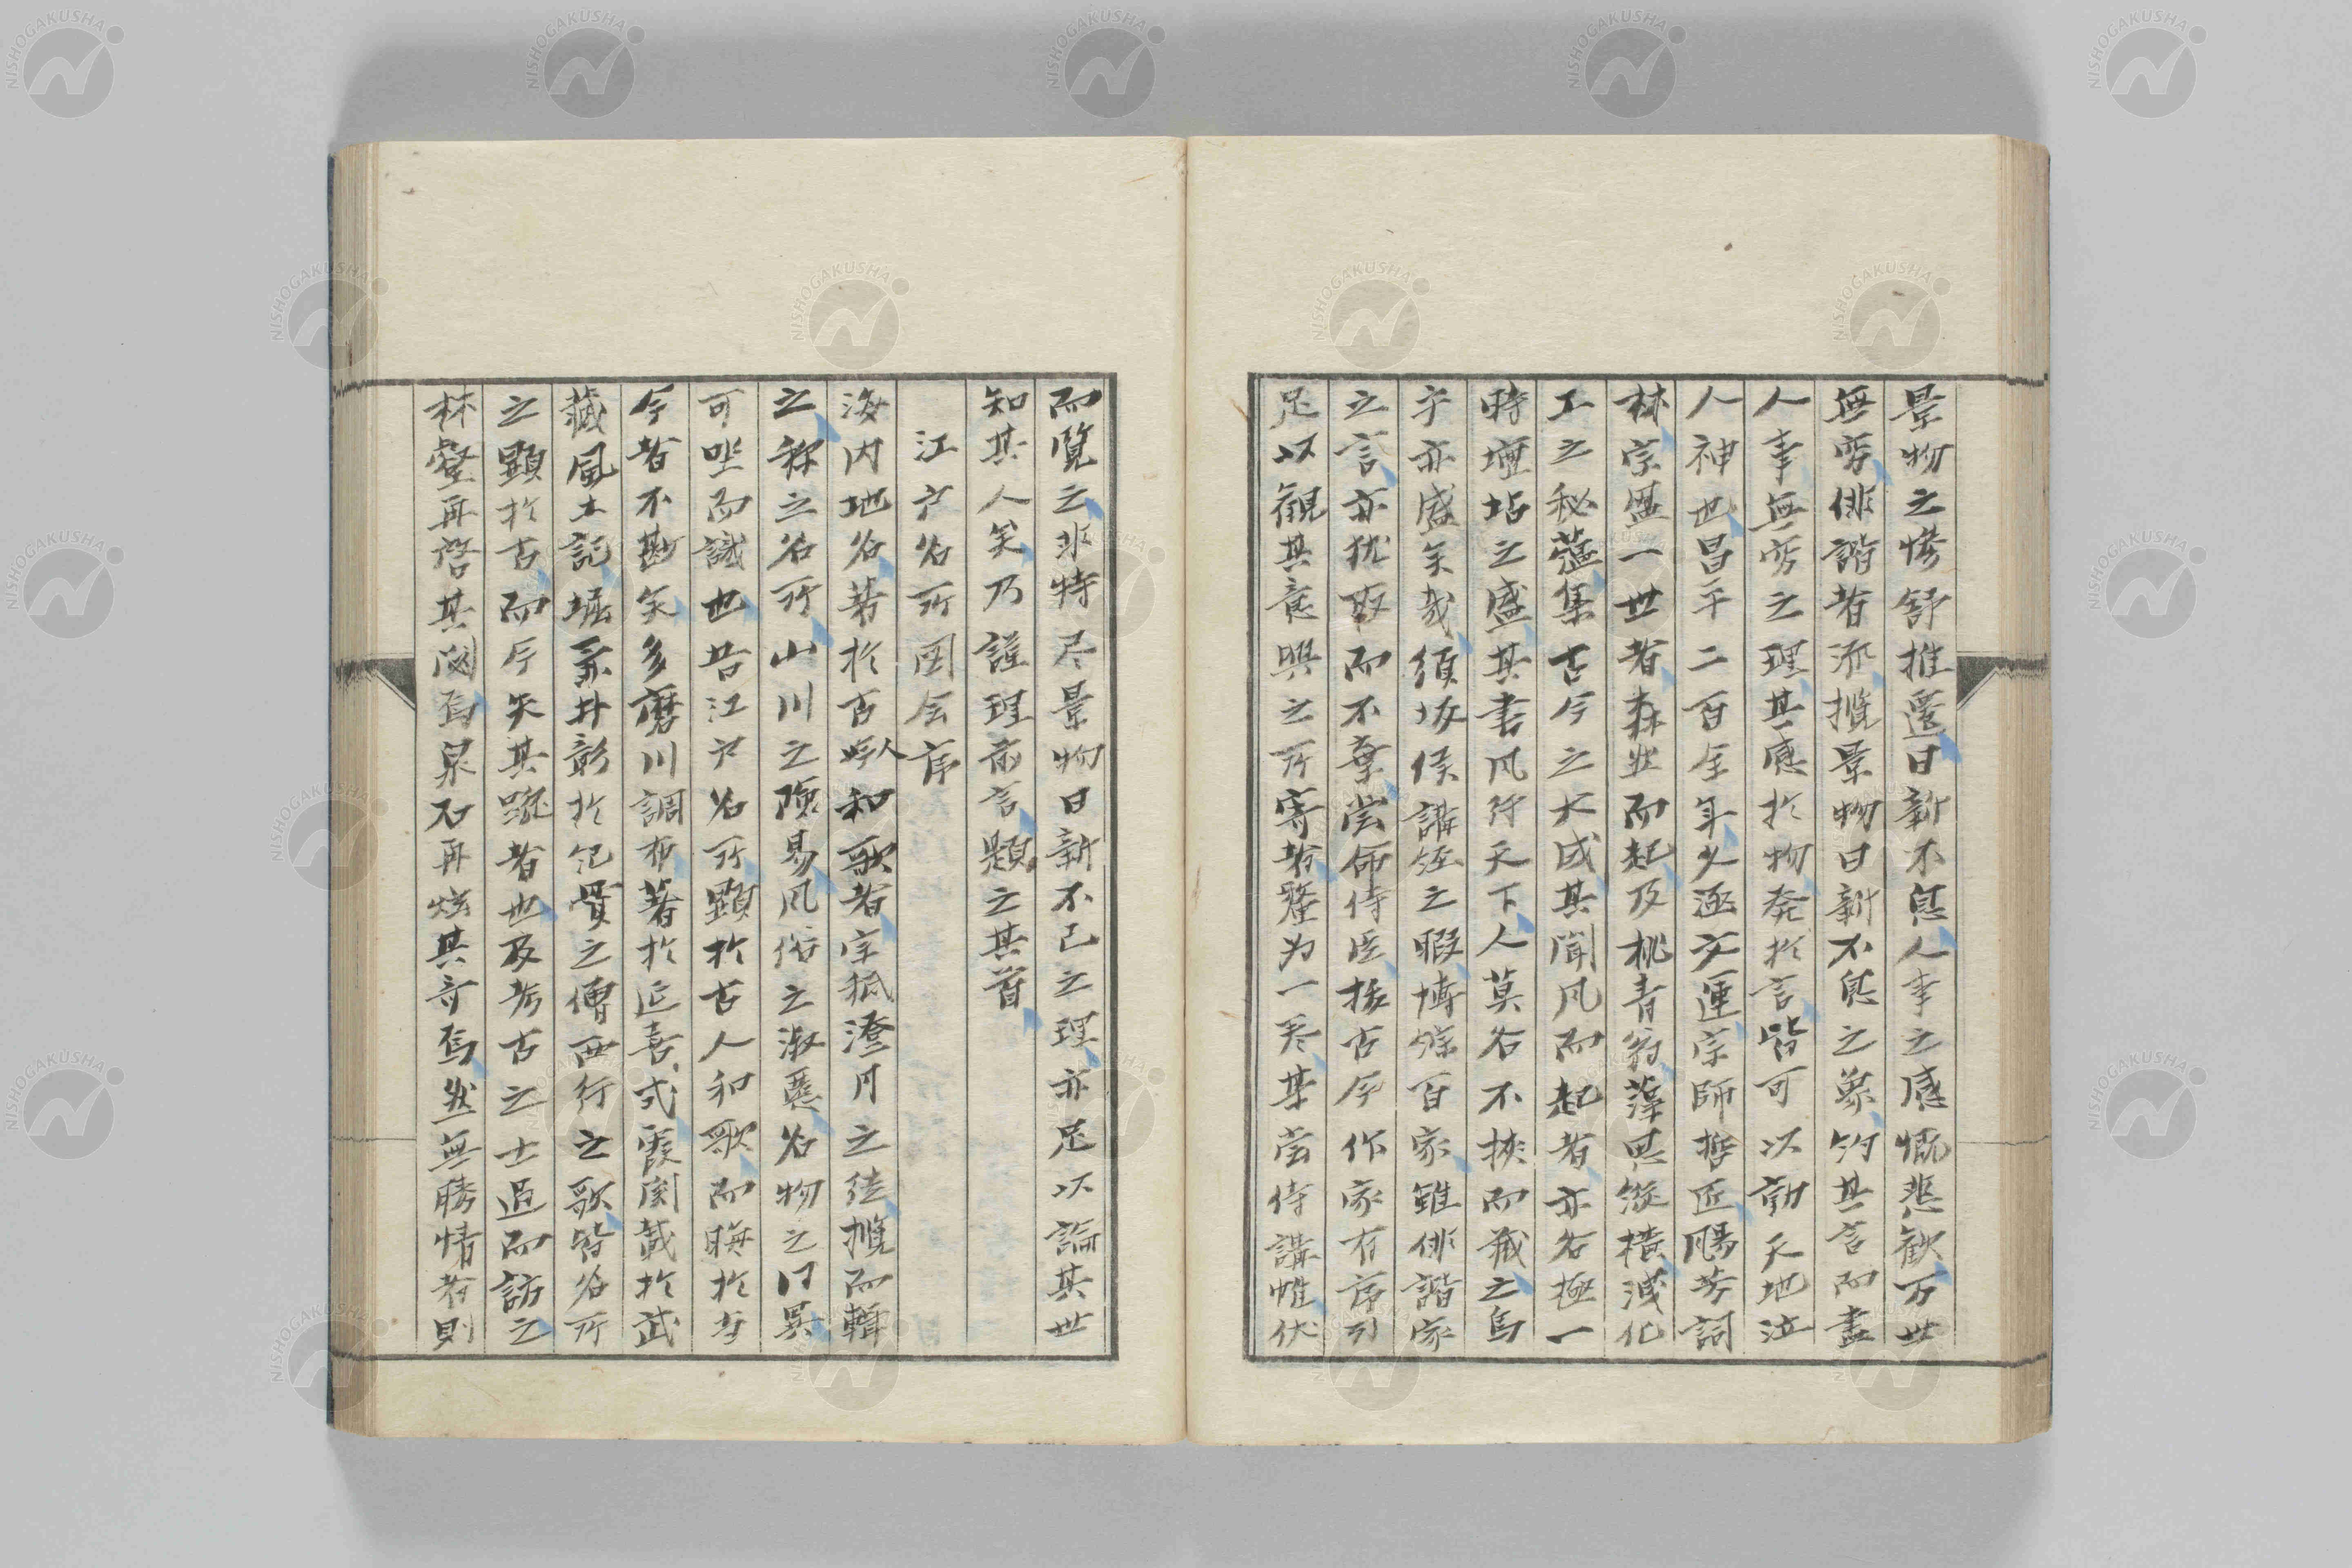 景物之慘舒推遷日新不息人事之感慨悲歓万世
無窮俳諧者流攬景物日新不息之象約其言而盡
人事無窮之理其感於物発於言皆可以動天地泣
人神也昌平二百余年文運宗師哲匠騒芳詞
林宗盟一世者森然而起及桃青翁藻思縦横減化
工之秘蘊集古今之大成其聞風而起者亦各極一
時壇坫之盛其書風行天下人莫各不挟而蔵之烏
乎亦盛矣哉須坂侯講経之暇博綜百家雖俳諧家
之言亦猶取而不棄嘗命侍臣捄古今作家有序引
足以観其意興之所寄者釐為一巻某嘗侍講帷伏
而覧之非特尽景物日新不已之理亦足以論其世
知其人矣乃謹理前言題之其首
江戸名所図会序
海内地名著於古人吟和歌者宗祇澄月之徒攬而輯
之称之名所山川之険易風俗之淑慝名物之同異
可坐而識也昔江戸名所顕於古人和歌而晦於
今者不尠矣多磨川調布著於延喜式霞関載於武
蔵風土記堀兼井彰於紀貫之僧西行之歌皆名所
之顕於古而今失其蹤者也及考古之士過而訪之
林壑再啓其閟焉泉石再炫其奇焉然無勝情者則
NISHOGAKUSHA